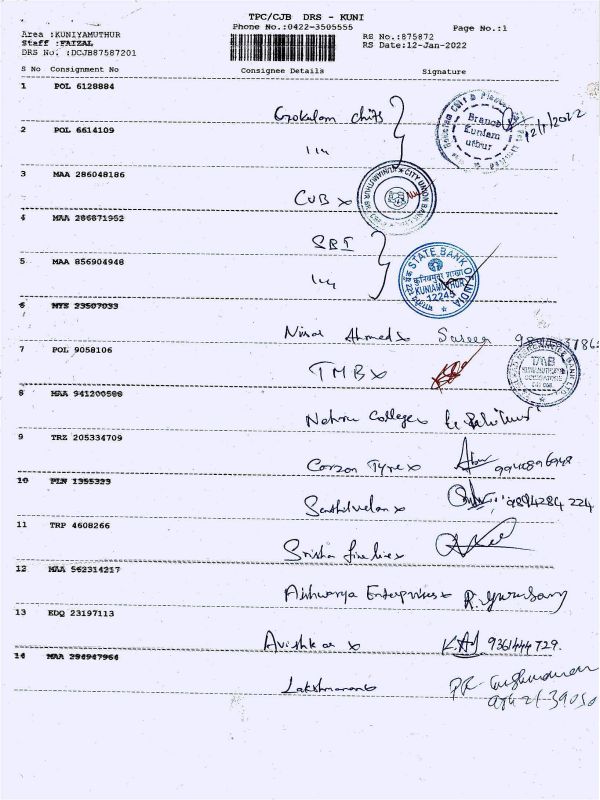 TPC/CJB DRS - KUNI
Phone No.:0422-3505555
Page No.:1
Area :KUNIYAMUTHUR
Staff :FAIZAL
DRS No. :DCJB87587201
RS No.:875872
RS Date:12-Jan-2022
S No Consignment No Consignee Details Signature
1 POL 6128884
Gokulam chits
Branch
Kuniam
uthur
12/1/2022
2 POL 6614109
3 MAA 286048186
CUB
CITY UNION BANK
4 MAA 286871952
SBI
STATE BANK OF INDIA
5 MAA 856904948
KUNIAMUTHUR
12245
6 MTS 23507033
Nisar Ahmed
7 POL 9058106
TMB
TMB
8 MAA 941200588
Nehru College
9 TRZ 205334709
Corzon Tyre
10 PLN 1355323
Senthilvelan 9894284 224
11 TRP 4608266
12 MAA 562314217
Aishwarya Enterprises
13 EDQ 23197113
Avishkar 9361444729.
14 MAA 294947964
Lakshmanan